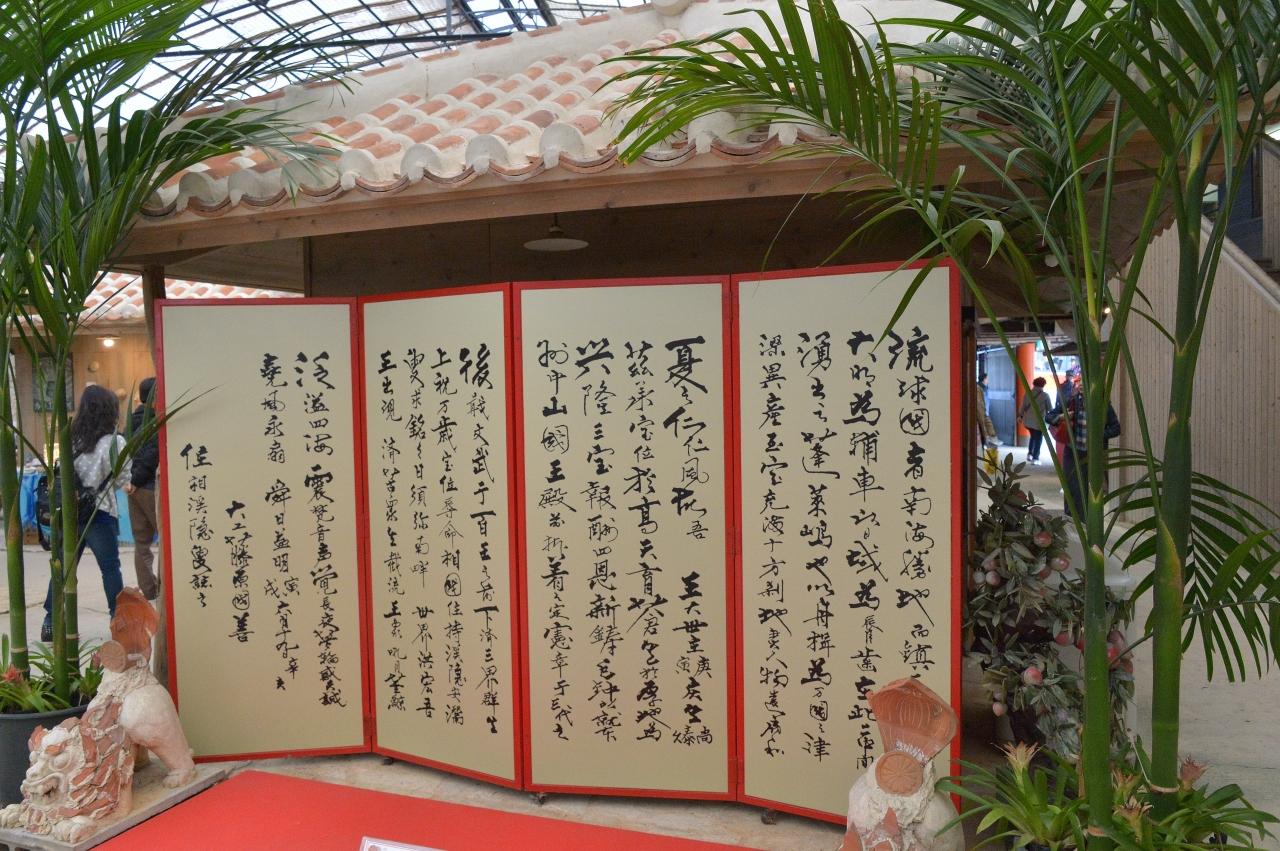 琉球國者南海勝地而鍾
大明為輔車以日域為脣歯在此二中間
湧出之蓬莱嶋也以舟楫為万國之津
梁異産至宝充満十方刹地霊人物遠扇和
夏之仁風故吾 王大世主庚寅慶生尚泰久
茲承宝位於高天育蒼生於厚地為
興隆三宝報酬四恩新鋳巨鐘以就本
州中山國王殿前掛着之定憲章于三代之
後戢文武于百王之前下済三界群生
上祝万歳宝位辱命相國住持渓隠安潜
叟求銘々曰須弥南畔 世界洪宏吾
王出現 済苦衆生截流玉象吼月華鯨
泛溢四海 震梵音声覚長夜夢輸感天誠
堯風永扇 舜日益明 戊寅六月十九日辛亥
大工藤原國善
住相渓隠叟誌之